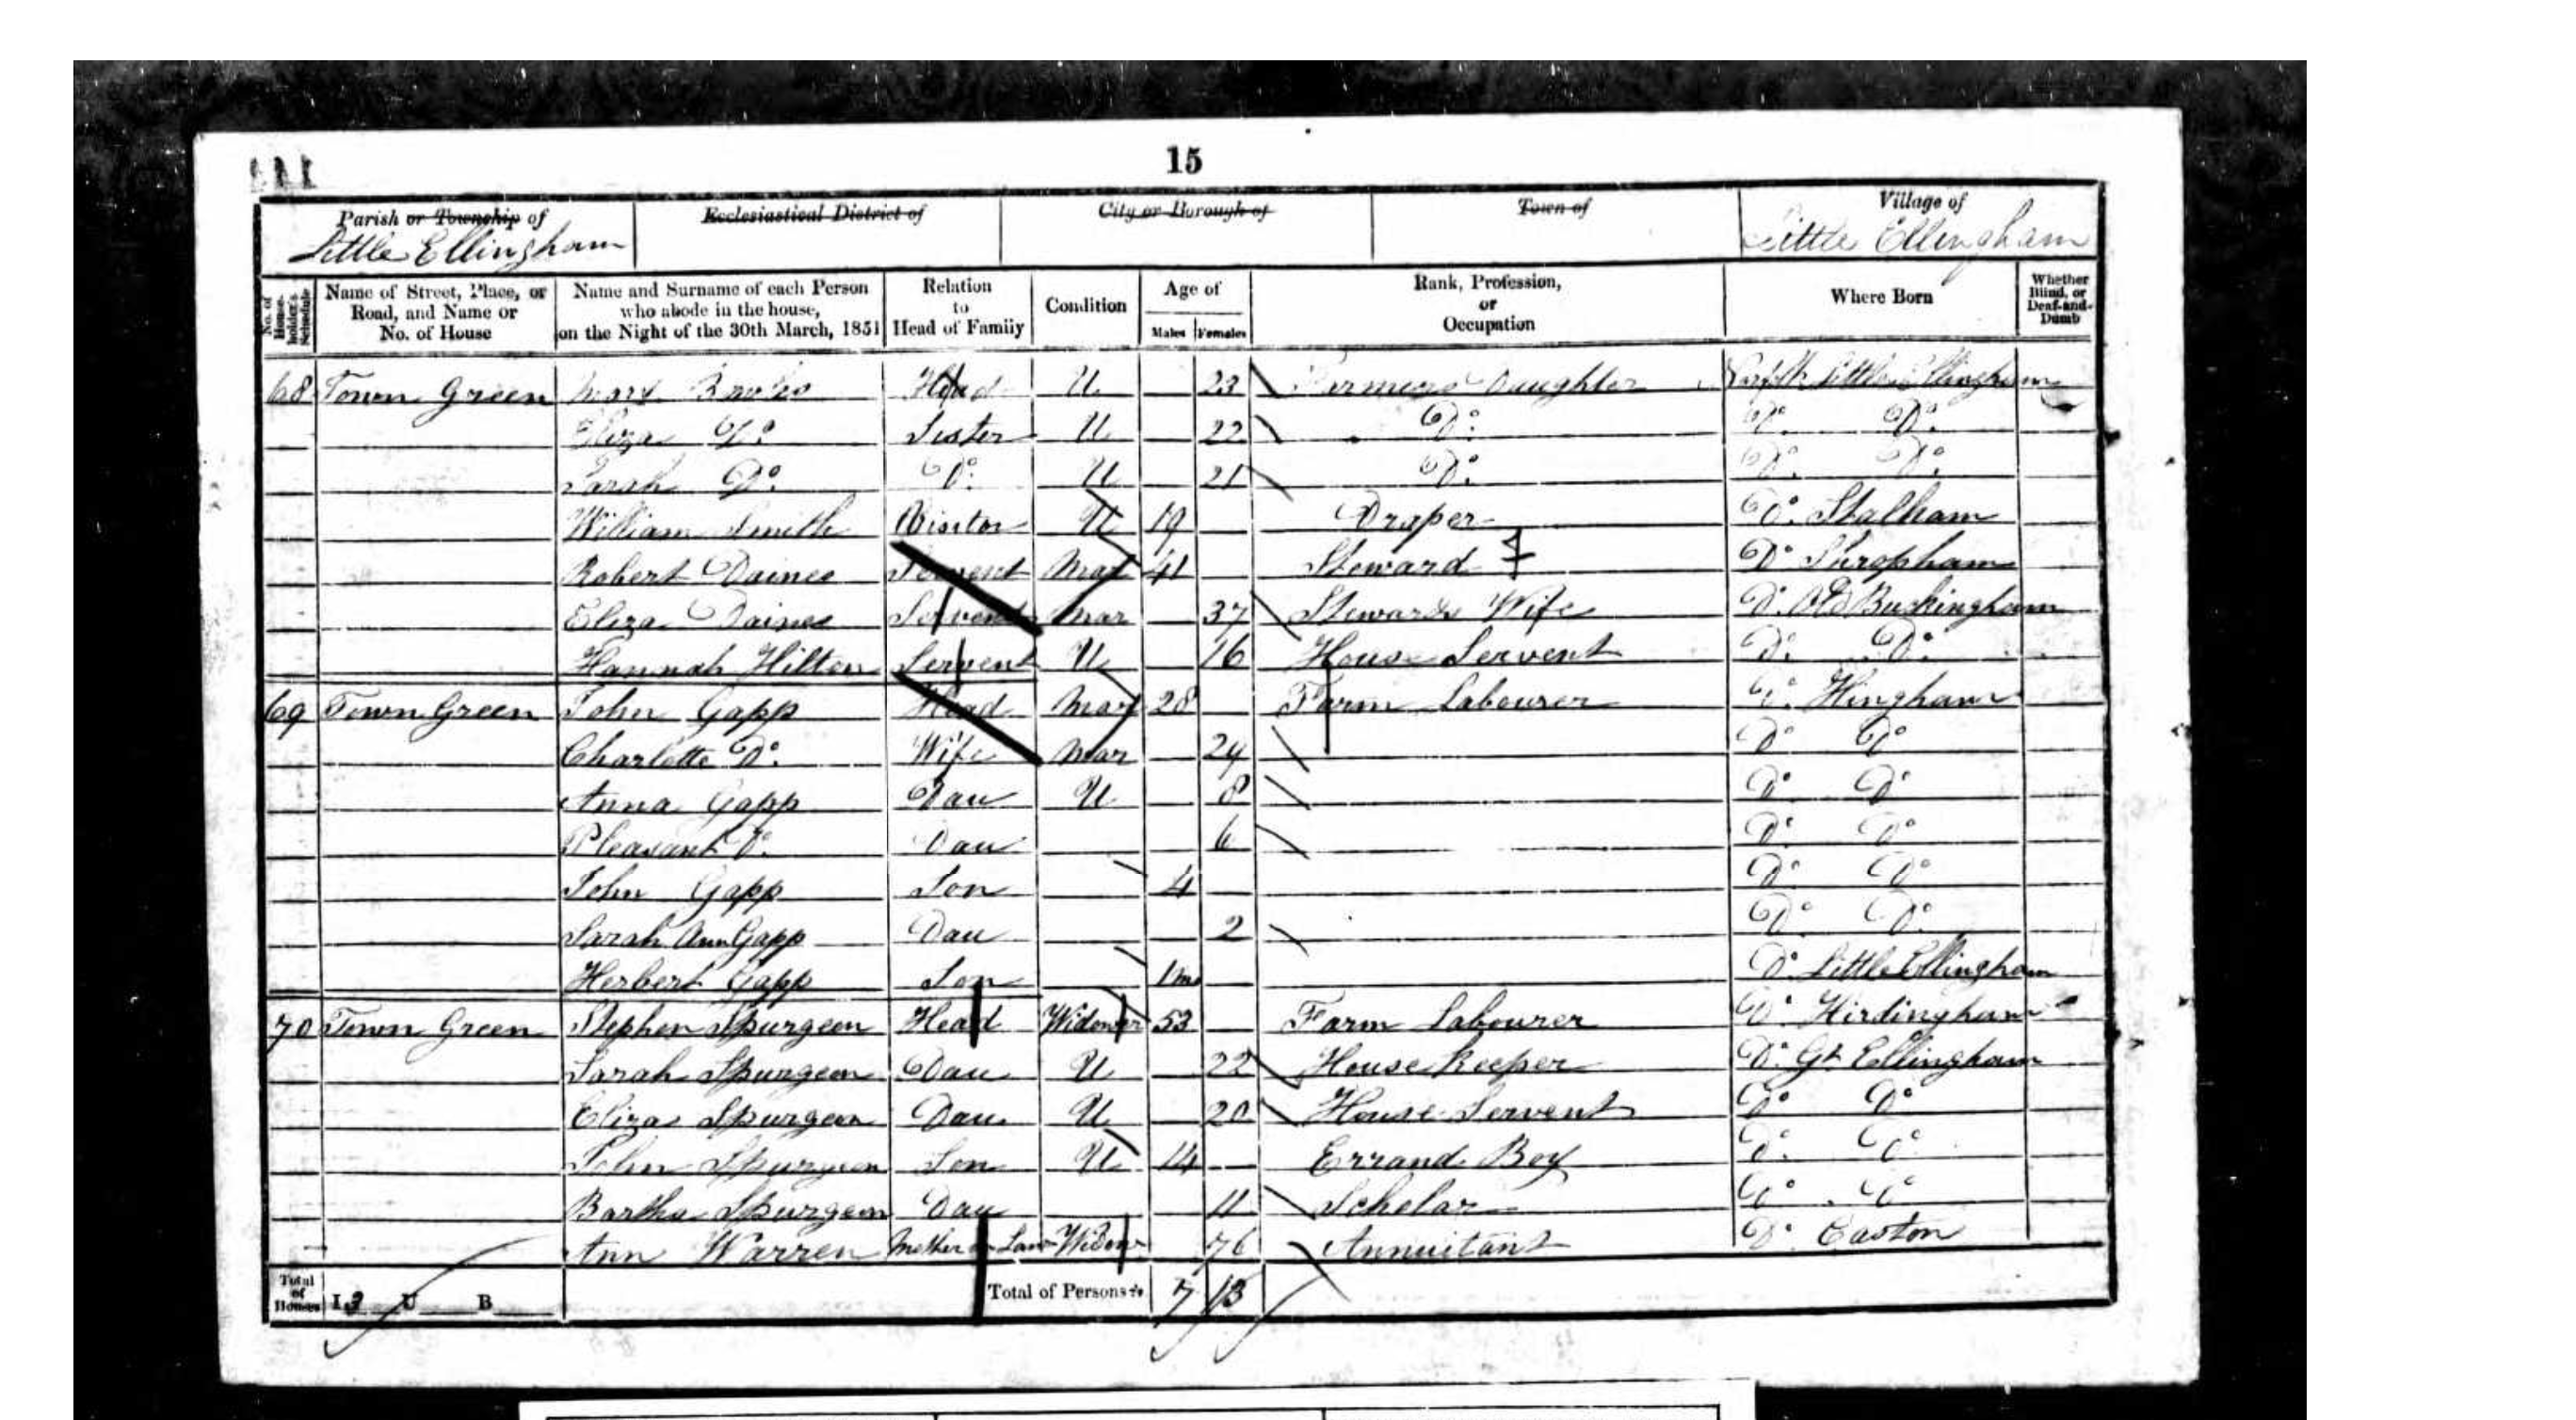 15
Parish or Township of Ecclesiastical District of City or Borough of Town of Village of
Little Ellingham Little Ellingham
No. of House-holder's Schedule Name of Street, Place, or Road, and Name or No. of House Name and Surname of each Person who abode in the house, on the Night of the 30th March, 1851 Relation to Head of Family Condition Age of Males Females Rank, Profession, or Occupation Where Born Whether Blind, or Deaf-and-Dumb
68 Town Green Mary Head U 23 Farmers Daughter Norfolk Little Ellingham
Eliza Do. Sister U 22 Do. Do. Do.
Sarah Do. Do. U 21 Do. Do. Do.
William Smith Visitor U 19 Draper Do. Stalham
Robert Daines Servent Mar 41 Steward Do. Shropham
Eliza Daines Servent Mar 37 Stewards Wife Do. Old Buckingham
Hannah Hilton Servent U 16 House Servent Do. Do.
69 Town Green John Gapp Head Mar 28 Farm Labourer Do. Hingham
Charlotte Do. Wife Mar 29 Do. Do.
Anna Gapp Dau U 8 Do. Do.
Pleasant Do. Dau 6 Do. Do.
John Gapp Son 4 Do. Do.
Sarah Ann Gapp Dau 2 Do. Do.
Herbert Gapp Son 1m Do. Little Ellingham
70 Town Green Stephen Spurgeon Head Widower 53 Farm Labourer Do. Hirdingham
Sarah Spurgeon Dau U 22 House Keeper Do. Gt. Ellingham
Eliza Spurgeon Dau U 20 House Servent Do. Do.
John Spurgeon Son U 14 Errand Boy Do. Do.
Bartha Spurgeon Dau 11 Scholar Do. Do.
Ann Warren Mother in Law Widow 76 Annuitant Do. Caston
Total of Houses I 3 U B Total of Persons 7 13